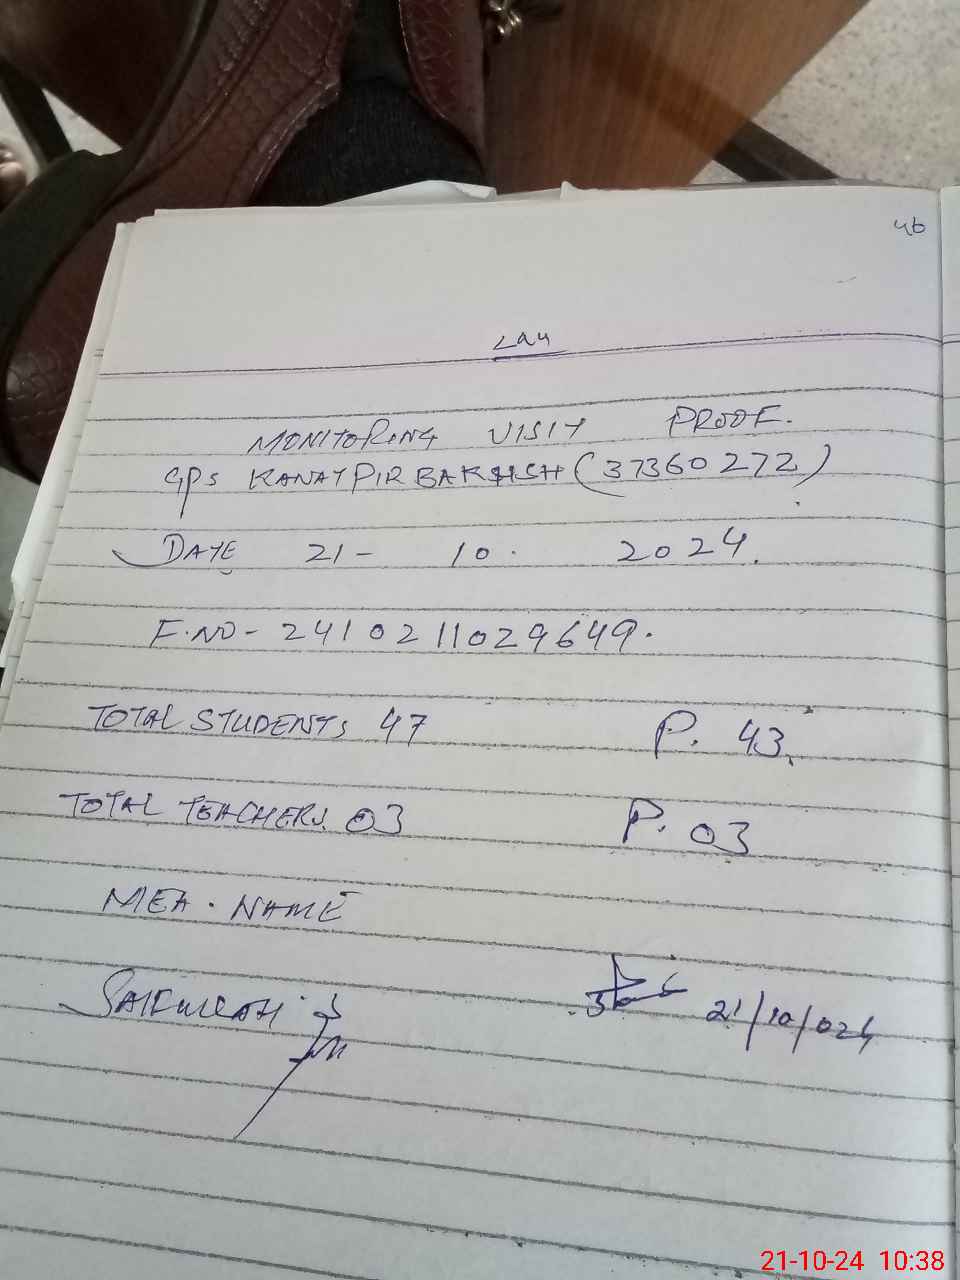 46
MONITORING VISIT PROOF.
GPS KANAY PIR BAKHSH (37360272)
DATE 21 - 10 . 2024.
F.NO - 2410211029649.
TOTAL STUDENTS 47 P. 43
TOTAL TEACHERS. 03 P. 03
MEA. NAME
SAIFULLAH 21/10/024
21-10-24 10:38